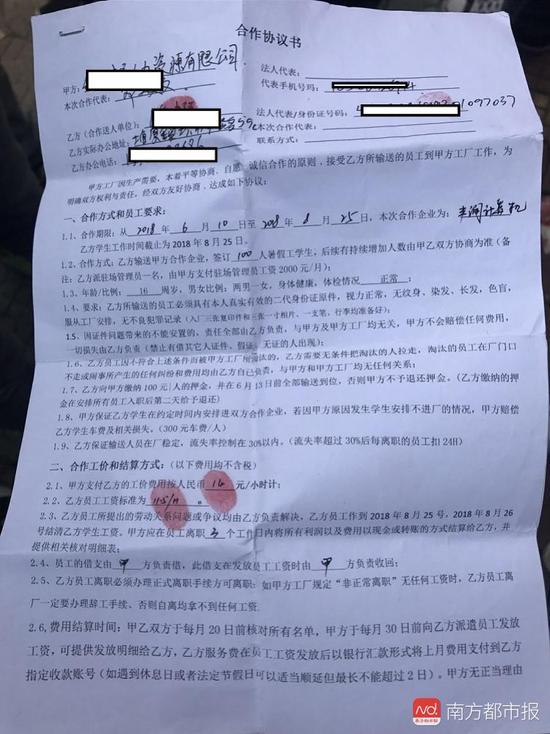 合作协议书
甲方： 资源有限公司
法人代表：
本次合作代表：
代表手机号码：
乙方（合作送人单位）：
法人代表/身份证号码： 01097037
乙方实际办公地址：
本次合作代表：
乙方办公电话：
联系方式：
甲方工厂因生产需要，本着平等协商、自愿、诚信合作的原则，接受乙方所输送的员工到甲方工厂工作，为
明确双方权利与责任，经双方友好协商，达成如下协议：
一、合作方式和员工要求：
1.1、合作期限：从 2018 年 6 月 10 日至 2018 年 8 月 25 日，本次合作企业为：
乙方学生工作时间截止为 2018 年 8 月 25 日。
1.2、合作方式：乙方输送甲方合作企业，签订 100 人暑假工学生，后续有持续增加人数由甲乙双方协商为准（备
注：乙方派驻场管理员一名，由甲方支付驻场管理员工资 2000 元/月）；
1.3、年龄/比例： 16 周岁，男女比例：两男一女，身体健康，体检情况 正常 ；
1.4、要求：乙方所输送的员工必须具有本人真实有效的二代身份证原件，视力正常，无纹身、染发、长发，色盲，
服从工厂安排，无不良犯罪记录（入厂三张复印件和三张一寸相片、一支笔，行李均准备好）；
1.5、因证件问题带来的不能安置的，责任全部由乙方负责，与甲方及甲方工厂均无关，甲方不会赔偿任何费用，
一切损失由乙方负责（禁止有借其它人证件、假证、无证的人出现）；
1.6、乙方员工因不符合上述条件而被甲方工厂所淘汰的，乙方需要无条件把淘汰的人拉走，淘汰的员工在厂门口
不走或闹事所产生的任何纠纷和费用均由乙方自己负责，与甲方和甲方工厂均无任何关系；
1.7、乙方向甲方缴纳 100 元/人的押金，并在 6 月 13 日前全部输送到位，否则甲方不予退还押金。（乙方缴纳的押
金在安排所有员工入职后第二天给予退还）
1.8、甲方保证乙方学生在约定时间内安排进双方合作企业，若因甲方原因发生学生安排不进厂的情况，甲方赔偿
乙方学生车费及相关损失。（300 元车费/人）
1.9、乙方保证输送人员在厂稳定，流失率控制在 30%以内。（流失率超过 30%后每离职的员工扣 24H）
二、合作工价和结算方式：（以下费用均不含税）
2.1、甲方支付乙方的工价费用按人民币 14 元/小时计；
2.2、乙方员工工资标准为 11.5/H 。
2.3、乙方员工所提出的劳动关系问题或争议均由乙方负责解决，乙方员工工作到 2018 年 8 月 25 号，2018 年 8 月 26
号结清乙方学生工资。甲方应在员工离职 3 个工作日内将所有利润以及费用以现金或转账的方式结算给乙方，并
提供相关核对明细表；
2.4、员工的借支由 甲 方负责借，此借支在发放员工工资时由 甲 方负责收回；
2.5、乙方员工离职必须办理正式离职手续方可离职；如甲方工厂规定“非正常离职”无任何工资时，乙方员工离
厂一定要办理辞工手续、否则自离均拿不到任何工资.
2.6、费用结算时间：甲乙双方于每月 20 日前核对所有名单，甲方于每月 30 日前向乙方派遣员工发放
工资，可提供发放明细给乙方，乙方服务费在员工工资发放后以银行汇款形式将上月费用支付到乙方
指定收款账号（如遇到休息日或者法定节假日可以适当顺延但最长不能超过 2 日）。甲方无正当理由
南方都市报